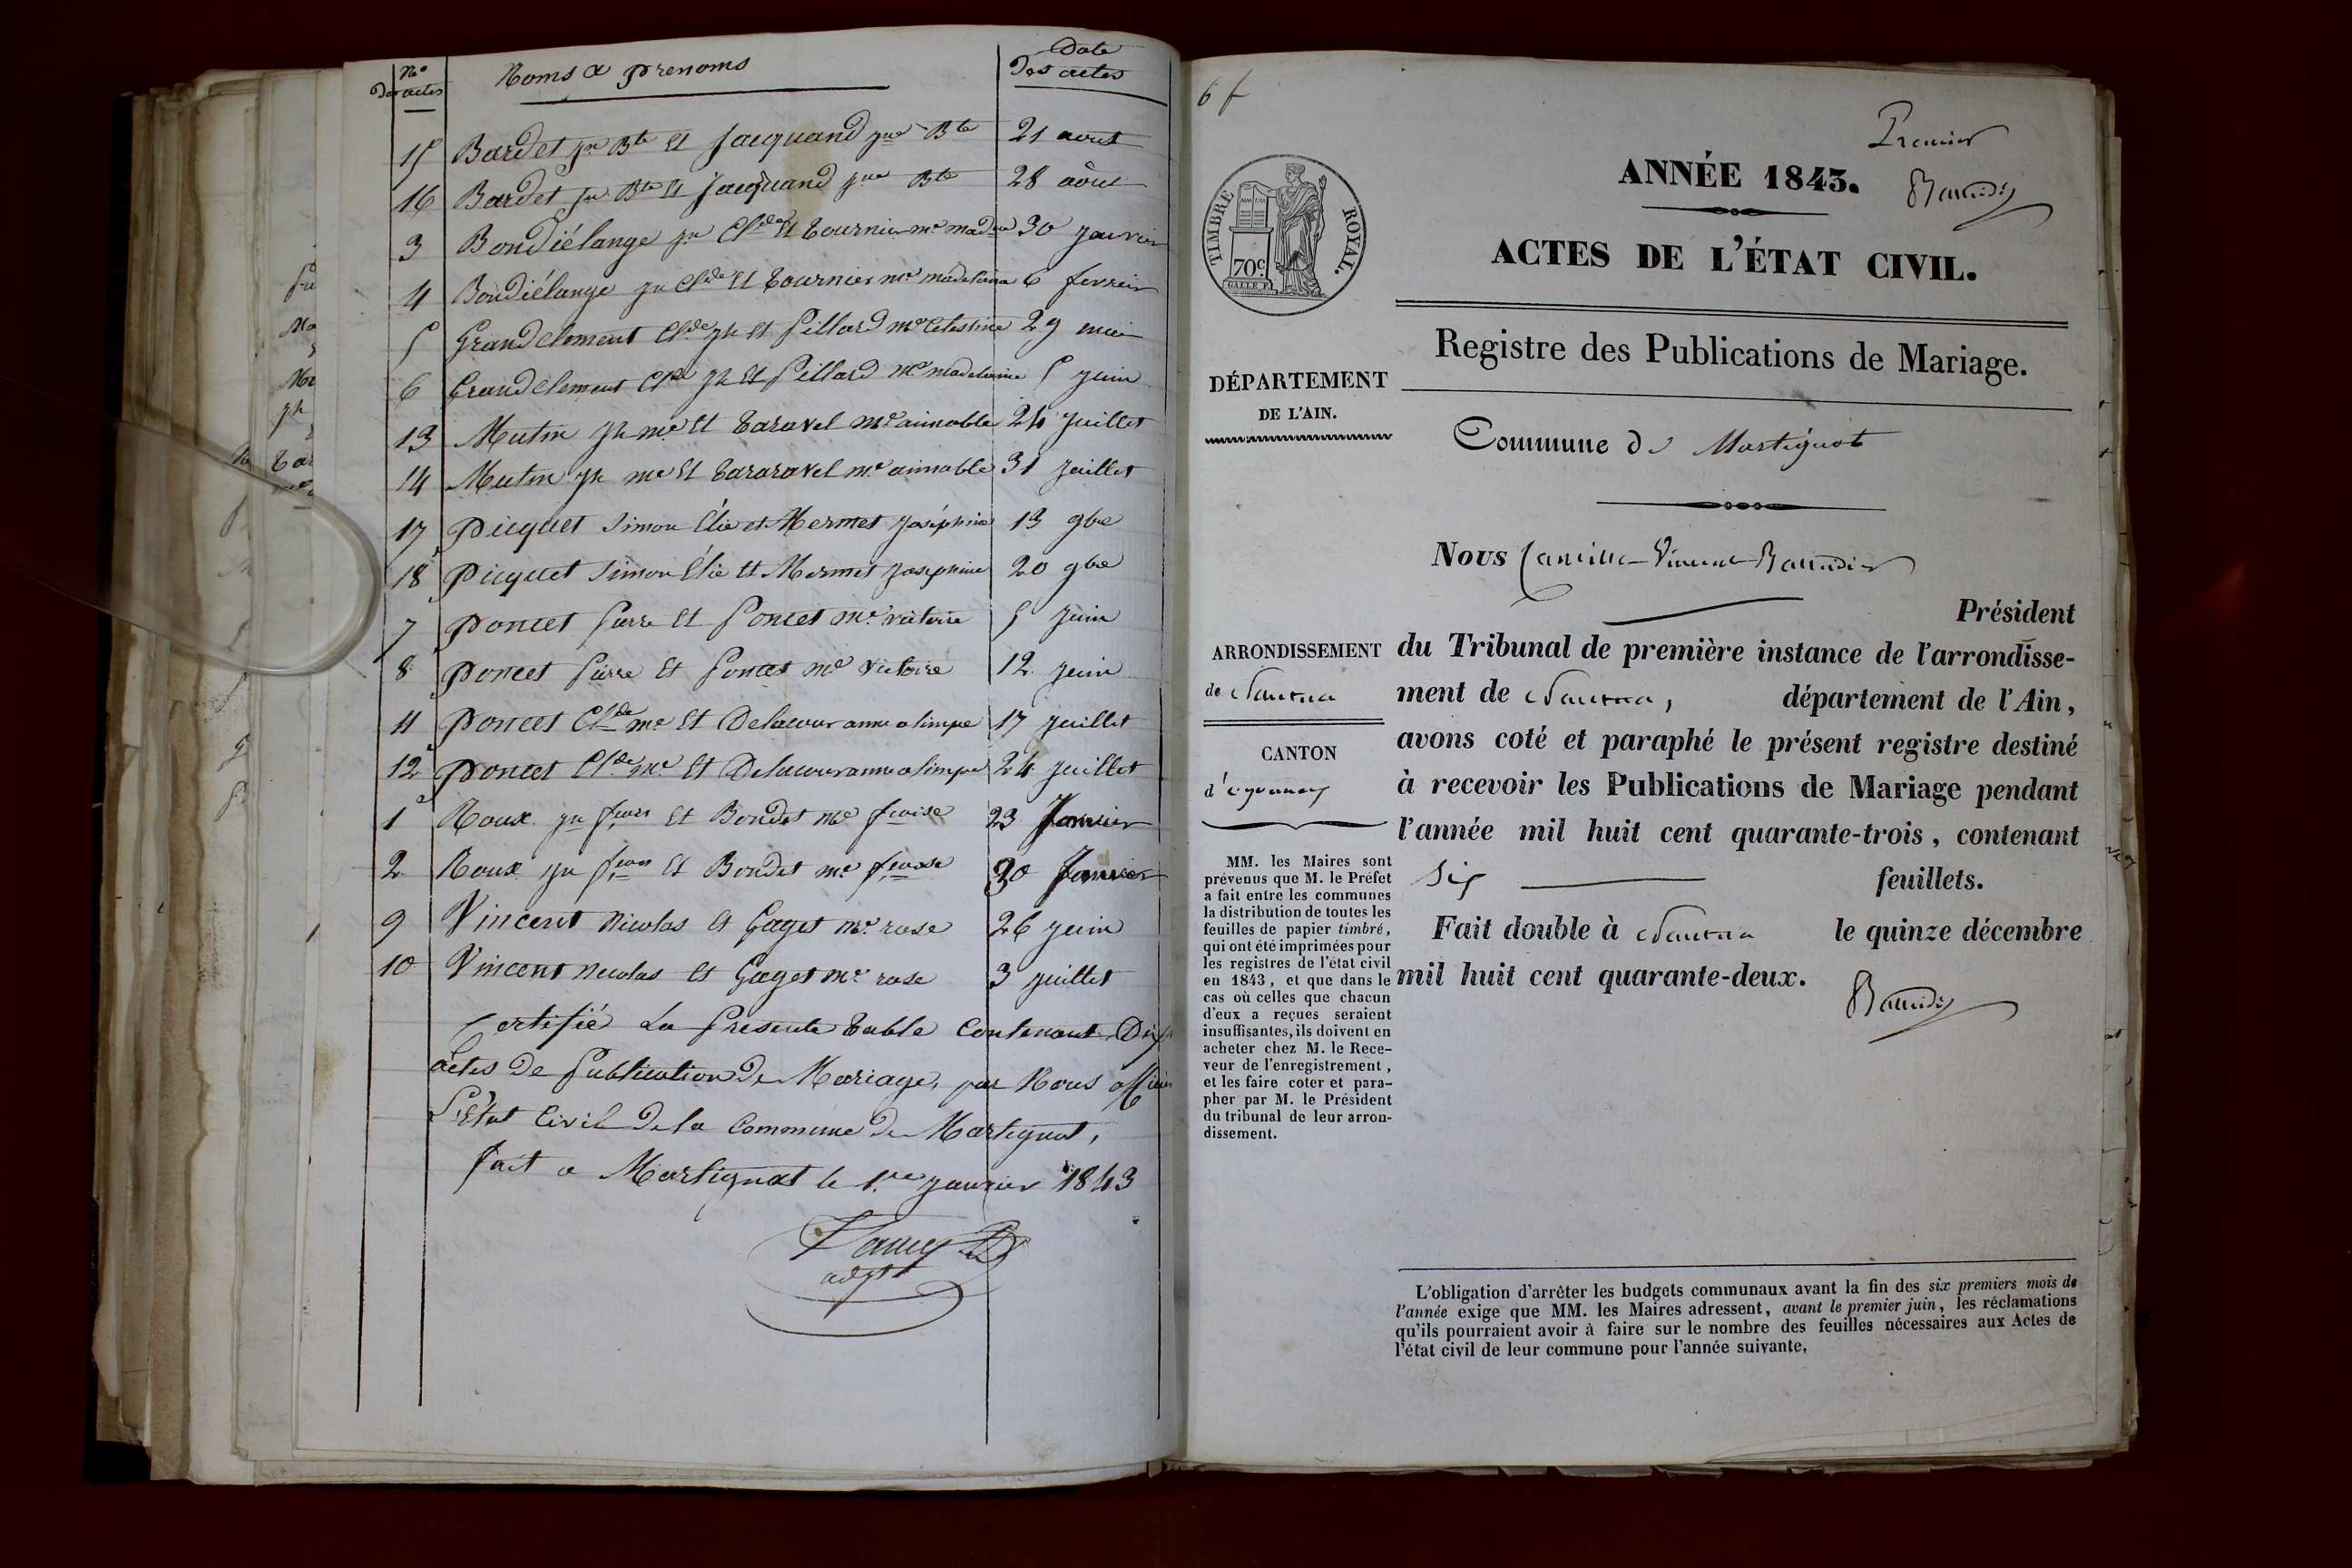 No
Des actes
Noms & prenoms
Date
Des actes
15 Bardet jn Bte et Jacquand jne Bte 21 aout
16 Bardet jn Bte et Jacquand jne Bte 28 aôut
3 Bondiélange jn Clde et Tournier me madne 30 janvier
4 Bondiélange jn Clde et Tournier me madelaine 6 fevreir
5 Grandclement Clde jh et Pillard me Celestine 29 mai
6 Grandclement Clde jh et Pillard me madelaine 5 juin
13 Mutin jh me et Taravel me aimable 24 juillet
14 Mutin jh me et Tararavel me aimable 31 juillet
17 Picquet Simon Élie et Mermet Joséphine 13 9bre
18 Picquet Simon Élie et Mermet Josephine 20 9bre
7 Poncet Pierre et Poncet me victoire 5 juin
8 Poncet Pierre et Poncet me victoire 12 juin
11 Poncet Clde me et Delacour anne olimpe 17 juillet
12 Poncet Clde me et Delacour anne olimpe 24 juillet
1 Roux jn fcois et Bondet me fcoise 23 Janvier
2 Roux jn fcois et Bondet me fcoise 30 Janvier
9 Vincent Nicolas et Gaget me rose 26 juin
10 Vincent Nicolas et Gaget me rose 3 juillet
Certifié La Presente Table Contenant Dix
actes De Publication De Mariage, par Nous officier
L'Etat Civil De la Commune De Martignat,
fait a Martignat le 1re janvier 1843
adjt
6 f
Premier
ANNÉE 1843.
TIMBRE ROYAL.
70c.
ACTES DE L'ÉTAT CIVIL.
Registre des Publications de Mariage.
DÉPARTEMENT
DE L'AIN.
Commune de Martignat
Nous Camille Vincent Baudier
Président
ARRONDISSEMENT
de Nantua
CANTON
d'oyonnax
du Tribunal de première instance de l'arrondisse-
ment de Nantua, département de l'Ain,
avons coté et paraphé le présent registre destiné
à recevoir les Publications de Mariage pendant
l'année mil huit cent quarante-trois, contenant
six feuillets.
Fait double à Nantua le quinze décembre
mil huit cent quarante-deux.
MM. les Maires sont
prévenus que M. le Préfet
a fait entre les communes
la distribution de toutes les
feuilles de papier timbré,
qui ont été imprimées pour
les registres de l'état civil
en 1843, et que dans le
cas où celles que chacun
d'eux a reçues seraient
insuffisantes, ils doivent en
acheter chez M. le Rece-
veur de l'enregistrement,
et les faire coter et para-
pher par M. le Président
du tribunal de leur arron-
dissement.
L'obligation d'arrêter les budgets communaux avant la fin des six premiers mois de
l'année exige que MM. les Maires adressent, avant le premier juin, les réclamations
qu'ils pourraient avoir à faire sur le nombre des feuilles nécessaires aux Actes de
l'état civil de leur commune pour l'année suivante.